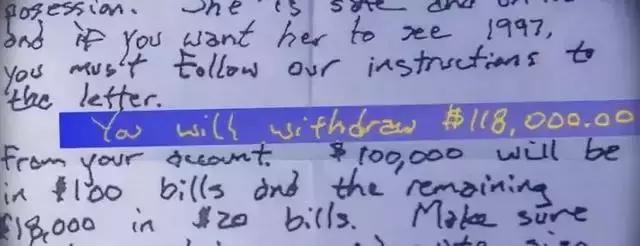 posession. She is safe and
and if you want her to see 1997,
you must follow our instructions to
the letter.
You will withdraw $118,000.00
from your account. $100,000 will be
in $100 bills and the remaining
$18,000 in $20 bills. Make sure